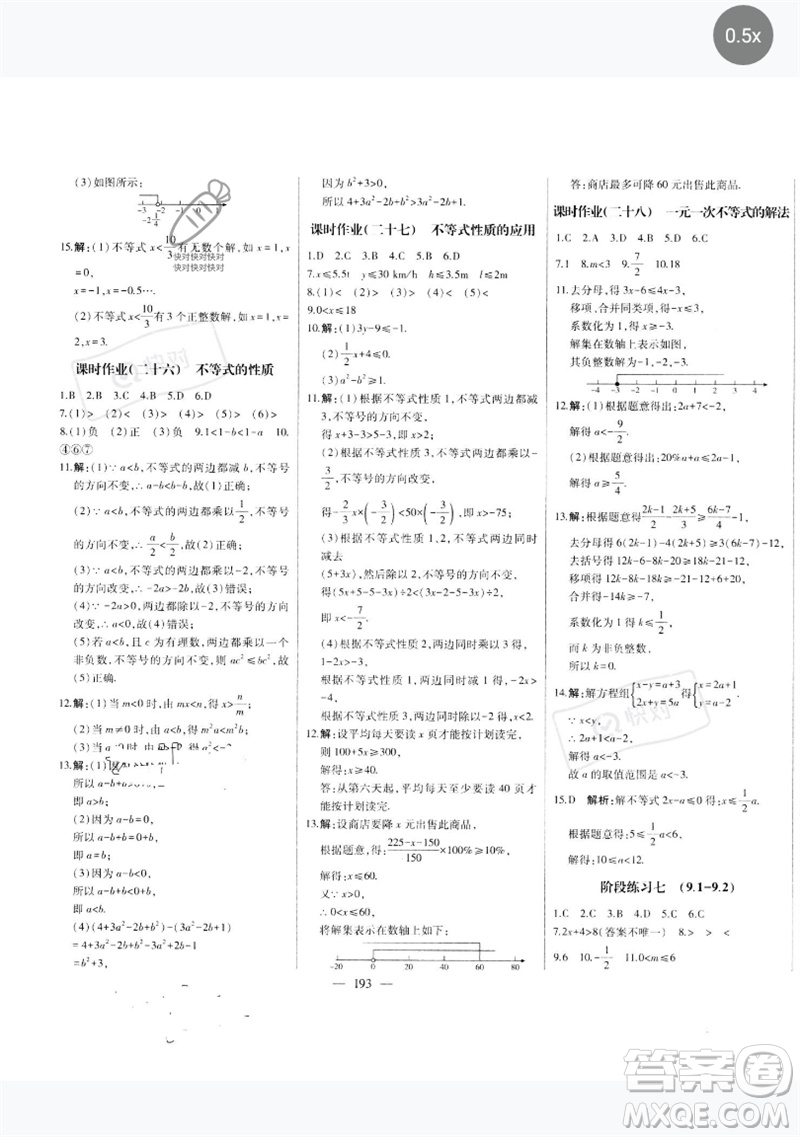 0.5x
(3)如图所示:
-3 -2 -1 0 1
-2 1/4
15.解:(1)不等式x<10/3有无数个解,如
x=0,
x=-1,x=-0.5….
(2)不等式x<10/3有3个正整数解,如
x=2,x=3.
课时作业(二十六) 不等式的性质
1.B 2.B 3.A 4.B 5.D 6.D
8.(1)负 (2)正 (3)负 9.1<1-b<1-a 10.
④⑥⑦
11.解:(1)∵a<b,不等式的两边都减b,不等号
的方向不变,∴a-b<b-b,故(1)正确;
(2)∵a<b,不等式的两边都乘以1/2,不等号
的方向不变,∴a/2<b/2,故(2)正确;
(3)∵a<b,不等式的两边都乘以-2,不等号
的方向改变,∴-2a>-2b,故(3)错误;
(4)∵-2a>0,两边都除以-2,不等号的方向
改变,∴a<0,故(4)错误;
(5)若a<b,且c为有理数,不等式的两边同乘
非负数,不等号的方向不变,则ac²≤bc²,故
(5)正确.
12.解:(1)当m<0时,由mx<n,得x>n/m;
(2)当m≠0时,由a<b,得m²a<m²b;
13.解:
所以a-b+b>0+b,
即a>b;
(2)因为a-b=0,
所以a-b+b=0+b,
即a=b;
(3)因为a-b<0,
所以a-b+b<0+b,
即a<b.
(4)(4+3a²-2b+b²)-(3a²-2b+1)
=4+3a²-2b+b²-3a²+2b-1
=b²+3,
因为b²+3>0,
所以4+3a²-2b+b²>3a²-2b+1.
课时作业(二十七) 不等式性质的应用
1.D 2.C 3.B 4.A 5.C 6.C
7.x≤5.5t x≤30 km/h h≤3.5m l≤2m
8.(1)< (2)> (3)> (4)> (5)<
9.0<x≤18
10.解:(1)3y-9≤-1.
(2)1/2x+4≤0.
(3)a²-b²>0.
11.解:(1)根据不等式性质1,不等式两边都减
3,不等号的方向不变,
得x+3-3>5-3,即x>2;
(2)根据不等式性质3,不等式两边都乘以
-3/2,不等号的方向改变,
得-2/3x×(-3/2)<50×(-3/2),即x>-75;
(3)根据不等式性质1,2,两边同时
减去
(5+3x),然后除以2,不等号的方向不变,
得(5x+5-5-3x)÷2<(-2-5)÷2,
即x<-7/2.
(4)根据不等式性质1,两边同时减1,不等号
的方向不变,
根据不等式性质3,两边同时乘以-1,不等号
的方向改变,
得(1-x-1)×(-1)<(3-1)×(-1),
12.解:设平均每天要读x页才能按计划读完.
则100+5x≥300.
解得:x≥40.
答:从第六天起,平均每天至少要读40页才
能按计划读完.
13.解:设商店要降x元出售此商品.
根据题意,得:(225-x-150)/150×100%≥10%,
解得:x≤60.
又∵x>0,
∴0<x≤60.
将解集表示在数轴上如下图:
-20 0 20 40 60 80
答:商店最多可降60元出售此商品.
课时作业(二十八) 一元一次不等式的解法
1.C 2.A 3.D 4.B 5.D 6.C
7.1 8.m<3 9.7/2 10.18
11.去分母,得3x-6≤4x-3,
移项,合并同类项,得-x≤3,
系数化为1,得x≥-3.
解集在数轴上表示如下:
其负整数解为-3,-2,-1.
-4 -3 -2 -1 0 1 2 3 4
12.解:(1)根据题意得出:2a+7<-2,
解得a<-9/2.
(2)根据题意得出:2-1/5a≤7/4,
解得:a≥5/4.
13.解:根据题意得(2k-1)/2-(2k+5)/4≥(6k-7)/6-1,
去分母得6(2k-1)-3(2k+5)≥2(6k-7)-12,
去括号得12k-6-6k-15≥12k-14-12,
移项得12k-6k-12k≥-14-12+6+15,
合并得-6k≥-5,
系数化为1得k≤5/6,
而k为非负整数,
所以k=0.
14.解:解方程组{x-y=a+3 2x+y=5a得{x=2a+1 y=a-2
∵x<y,
∴2a+1<a-2.
解得:a<-3.
故a的取值范围是a<-3.
15.D 解析:解不等式2x-a≤0得:x≤1/2a.
根据题意得:5≤1/2a<6,
解得:10≤a<12.
阶段练习七 (9.1-9.2)
1.C 2.C 3.B 4.D 5.D 6.C
7.2x+4>8(答案不唯一) 8.> > <
9.6 10.-1/2 11.0<m≤6
— 193 —
快对快对快对
快对快对快对
快对
快对
答案卷
MXQE.COM